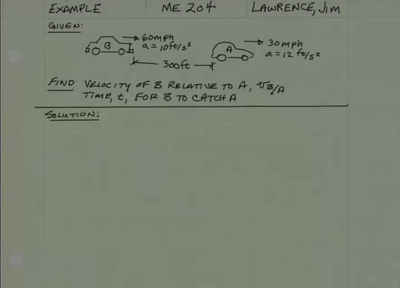 EXAMPLE ME 204 LAWRENCE, JIM
GIVEN:
B 60mph
a = 10 ft/s²
A 30mph
a = 12 ft/s²
300ft
FIND: VELOCITY OF B RELATIVE TO A, V B/A
TIME, t, FOR B TO CATCH A
SOLUTION: